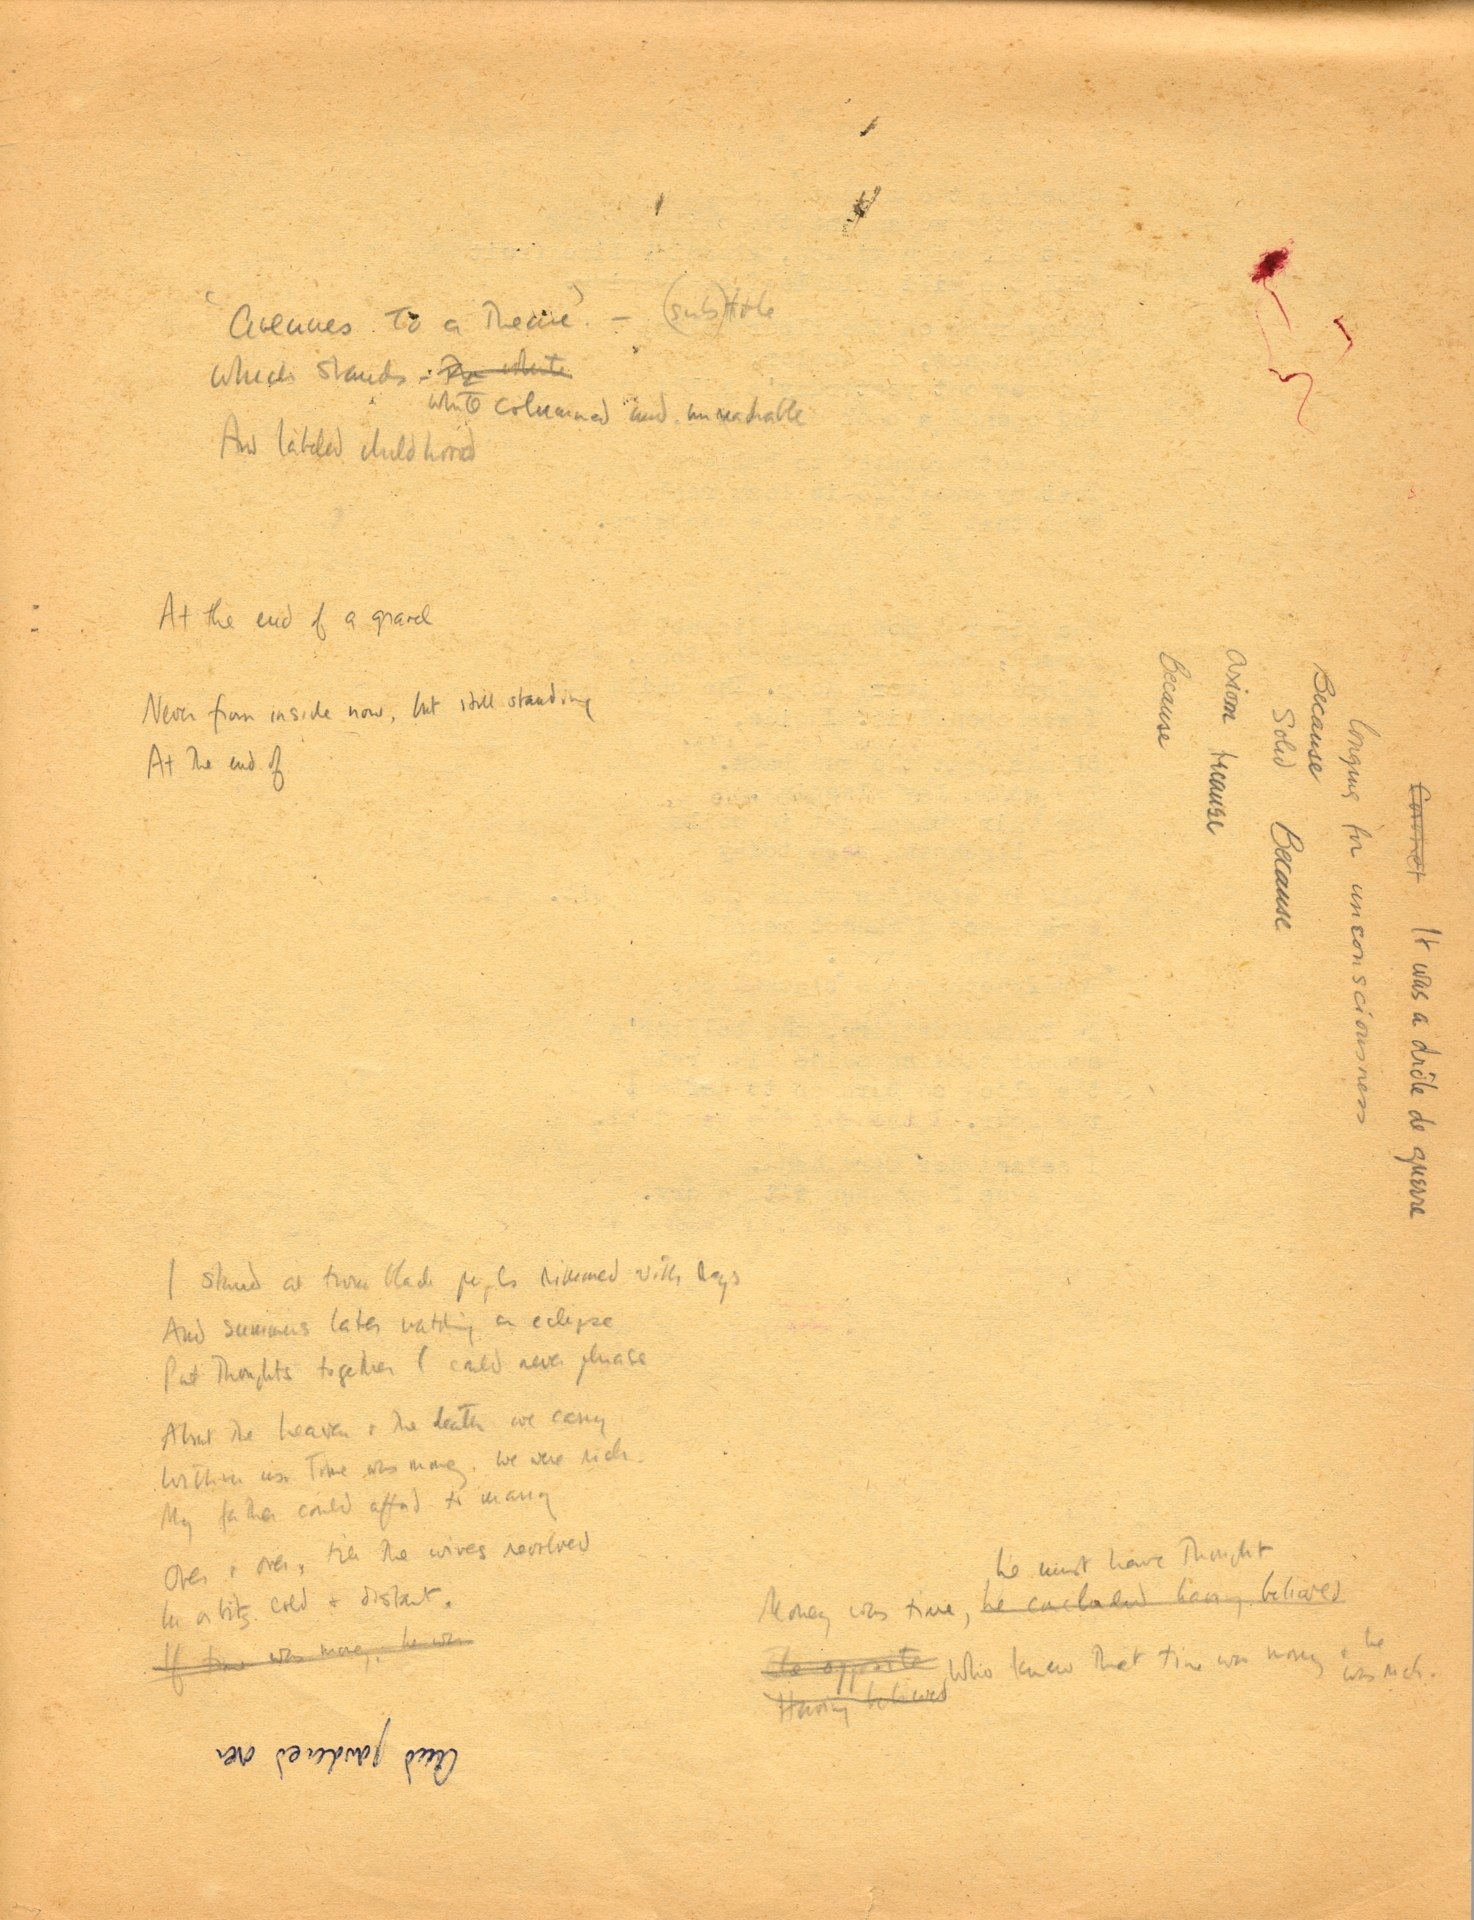 "Avenues to a Theme" – (sub)title
which stands . The white
white columned and unreachable
And labeled childhood
At the end of a gravel
Never from inside now, but still standing
At the end of
I stared at twin black pupils rimmed with
And summers later watching an eclipse
Put thoughts together I could never phrase
About the heaven & the death we carry
Within us. Time was money. We were rich.
My father could afford to marry
Over & over, till the wives revolved
In orbits cold & distant.
If time was money, he was
he must have thought
Money was time, he concluded having believed
The opposite Who knew that time was money & he was rich.
Having believed
And pondered over
It was a drôle de guerre
longing for unconsciousness
Because
Solid Because
because
Because